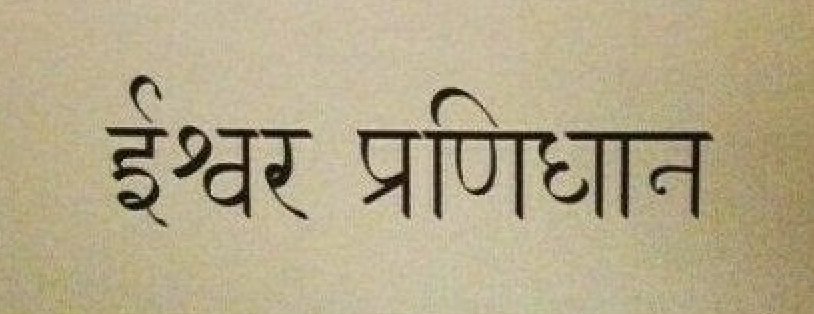 ईश्वर प्रणिधान